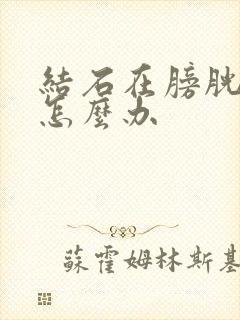 結石在膀胱
怎麼办
蘇霍姆林斯基